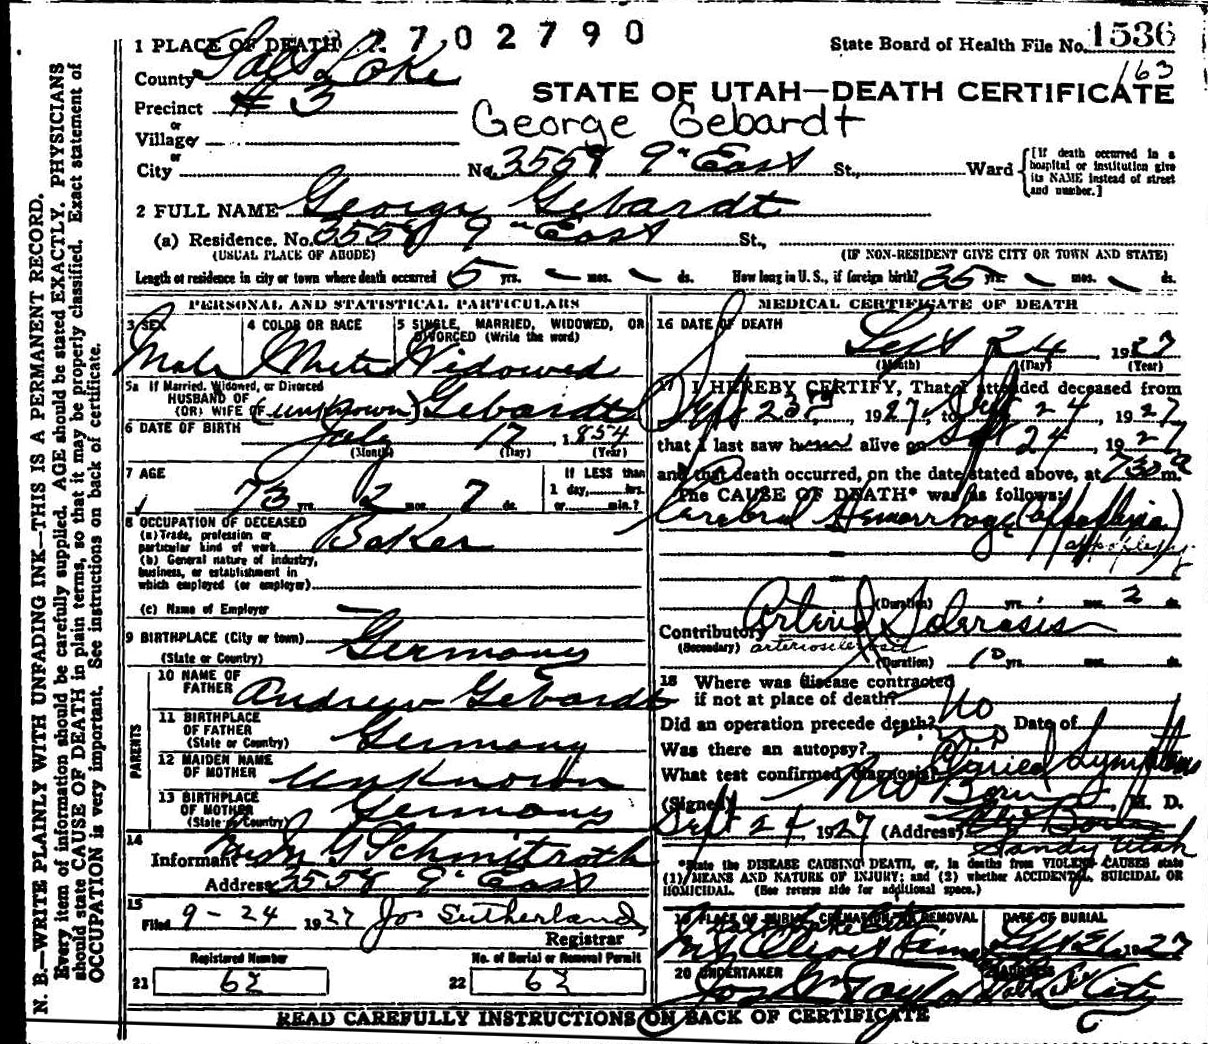 1 PLACE OF DEATH 2702790 State Board of Health File No. 1536
County Salt Lake 163
Precinct # 3 STATE OF UTAH—DEATH CERTIFICATE
or
Village George Gebardt
or
City No. 3558 9" East St., Ward {[If death occurred in a hospital or institution give its NAME instead of street and number.]
2 FULL NAME George Gebardt
(a) Residence. No. 3558 9" East St.,
(USUAL PLACE OF ABODE) (IF NON-RESIDENT GIVE CITY OR TOWN AND STATE)
Length of residence in city or town where death occurred 5 yrs. — mos. — ds. How long in U. S., if foreign birth? 35 yrs. — mos. — ds.
PERSONAL AND STATISTICAL PARTICULARS
3 SEX 4 COLOR OR RACE 5 SINGLE, MARRIED, WIDOWED, OR DIVORCED (Write the word)
Male White Widowed
5a If Married, Widowed, or Divorced
HUSBAND OF
(OR) WIFE OF (unknown) Gebardt
6 DATE OF BIRTH July 17 1854
(Month) (Day) (Year)
7 AGE If LESS than
1 day, hrs.
73 yrs. 2 mos. 7 ds. or min.?
8 OCCUPATION OF DECEASED
(a) Trade, profession or
particular kind of work Baker
(b) General nature of industry,
business, or establishment in
which employed (or employer)
(c) Name of Employer —
9 BIRTHPLACE (City or town) Germany
(State or Country)
PARENTS
10 NAME OF
FATHER Andrew Gebardt
11 BIRTHPLACE
OF FATHER Germany
(State or Country)
12 MAIDEN NAME
OF MOTHER Unknown
13 BIRTHPLACE
OF MOTHER Germany
(State or Country)
14
Informant G Schmitroth
Address 3558 9" East
15
Filed 9-24 1927 Jos Sutherland
Registrar
Registered Number No. of Burial or Removal Permit
21 62 22 62
MEDICAL CERTIFICATE OF DEATH
16 DATE OF DEATH
Sept 24, 1927
(Month) (Day) (Year)
17 I HEREBY CERTIFY, That I attended deceased from
Sept 23rd, 1927, to Sept 24, 1927
that I last saw him alive on Sept 24, 1927
and that death occurred, on the date stated above, at 730 a m.
The CAUSE OF DEATH* was as follows:
Cerebral Hemorrhage
apoplexy
(Duration) yrs. mos. 2 ds.
Contributory Arterio Sclerosis
(Secondary) arteriosclerosis
(Duration) 10 yrs. mos. ds.
18 Where was disease contracted
if not at place of death?
Did an operation precede death? No Date of
Was there an autopsy? no
What test confirmed diagnosis? Clinical Symptoms
(Signed) M. D.
Sept 24, 1927 (Address)
Sandy Utah
*State the DISEASE CAUSING DEATH, or, in deaths from VIOLENT CAUSES state
(1) MEANS AND NATURE OF INJURY; and (2) whether ACCIDENTAL, SUICIDAL OR
HOMICIDAL. (See reverse side for additional space.)
19 PLACE OF BURIAL, CREMATION OR REMOVAL DATE OF BURIAL
Salt Lake City
Mt Olivet 1927
20 UNDERTAKER ADDRESS
Jos Wm Taylor Salt Lake City
READ CAREFULLY INSTRUCTIONS ON BACK OF CERTIFICATE
N. B.—WRITE PLAINLY WITH UNFADING INK—THIS IS A PERMANENT RECORD.
Every item of information should be carefully supplied. AGE should be stated EXACTLY. PHYSICIANS
should state CAUSE OF DEATH in plain terms, so that it may be properly classified. Exact statement of
OCCUPATION is very important. See instructions on back of certificate.